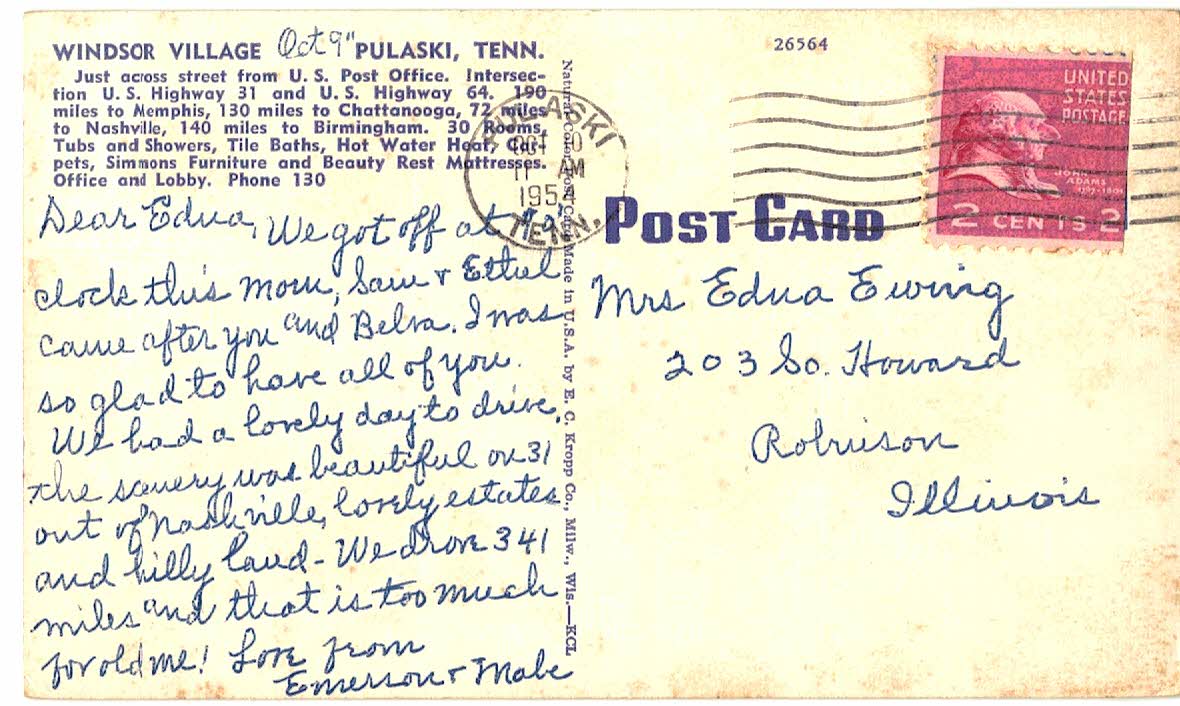 WINDSOR VILLAGE Oct 9" PULASKI, TENN.
Just across street from U. S. Post Office. Intersec-
tion U. S. Highway 31 and U. S. Highway 64. 190
miles to Memphis, 130 miles to Chattanooga, 72 miles
to Nashville, 140 miles to Birmingham. 30 Rooms,
Tubs and Showers, Tile Baths, Hot Water Heat, Car-
pets, Simmons Furniture and Beauty Rest Mattresses.
Office and Lobby. Phone 130
Dear Edna, We got off at
clock this morn, Sam & Ethel
came after you and Belva. I was
so glad to have all of you.
We had a lovely day to drive,
the scenery was beautiful on 31
out of Nashville, lovely estates
and hilly land - We drove 341
miles and that is too much
for old me! Love from
Emerson & Mabe
Natural Color Post Card Made in U.S.A. by E. C. Kropp Co., Milw., Wis.—KCL
26564
PULASKI
OCT 10
11 AM
195
TENN.
UNITED
STATES
POSTAGE
JOHN
ADAMS
1797-1801
2 CENTS 2
POST CARD
Mrs Edna Ewing
203 So. Howard
Robinson
Illinois